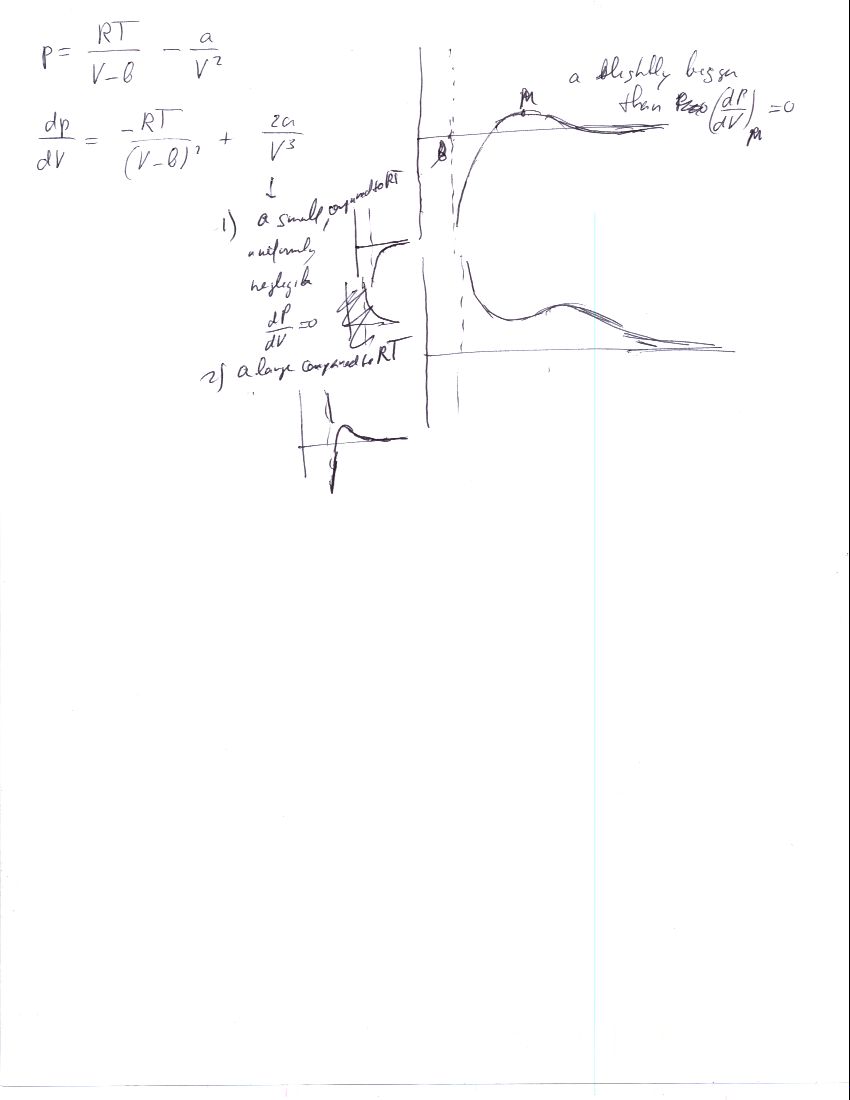 p = RT/(V-b) - a/V²
dp/dV = -RT/(V-b)² + 2a/V³
↓
1) a small, compared to RT
uniformly
negligible
dP/dV = 0
2) a large compared to RT
a slightly bigger
than (dP/dV)_M = 0
M
b